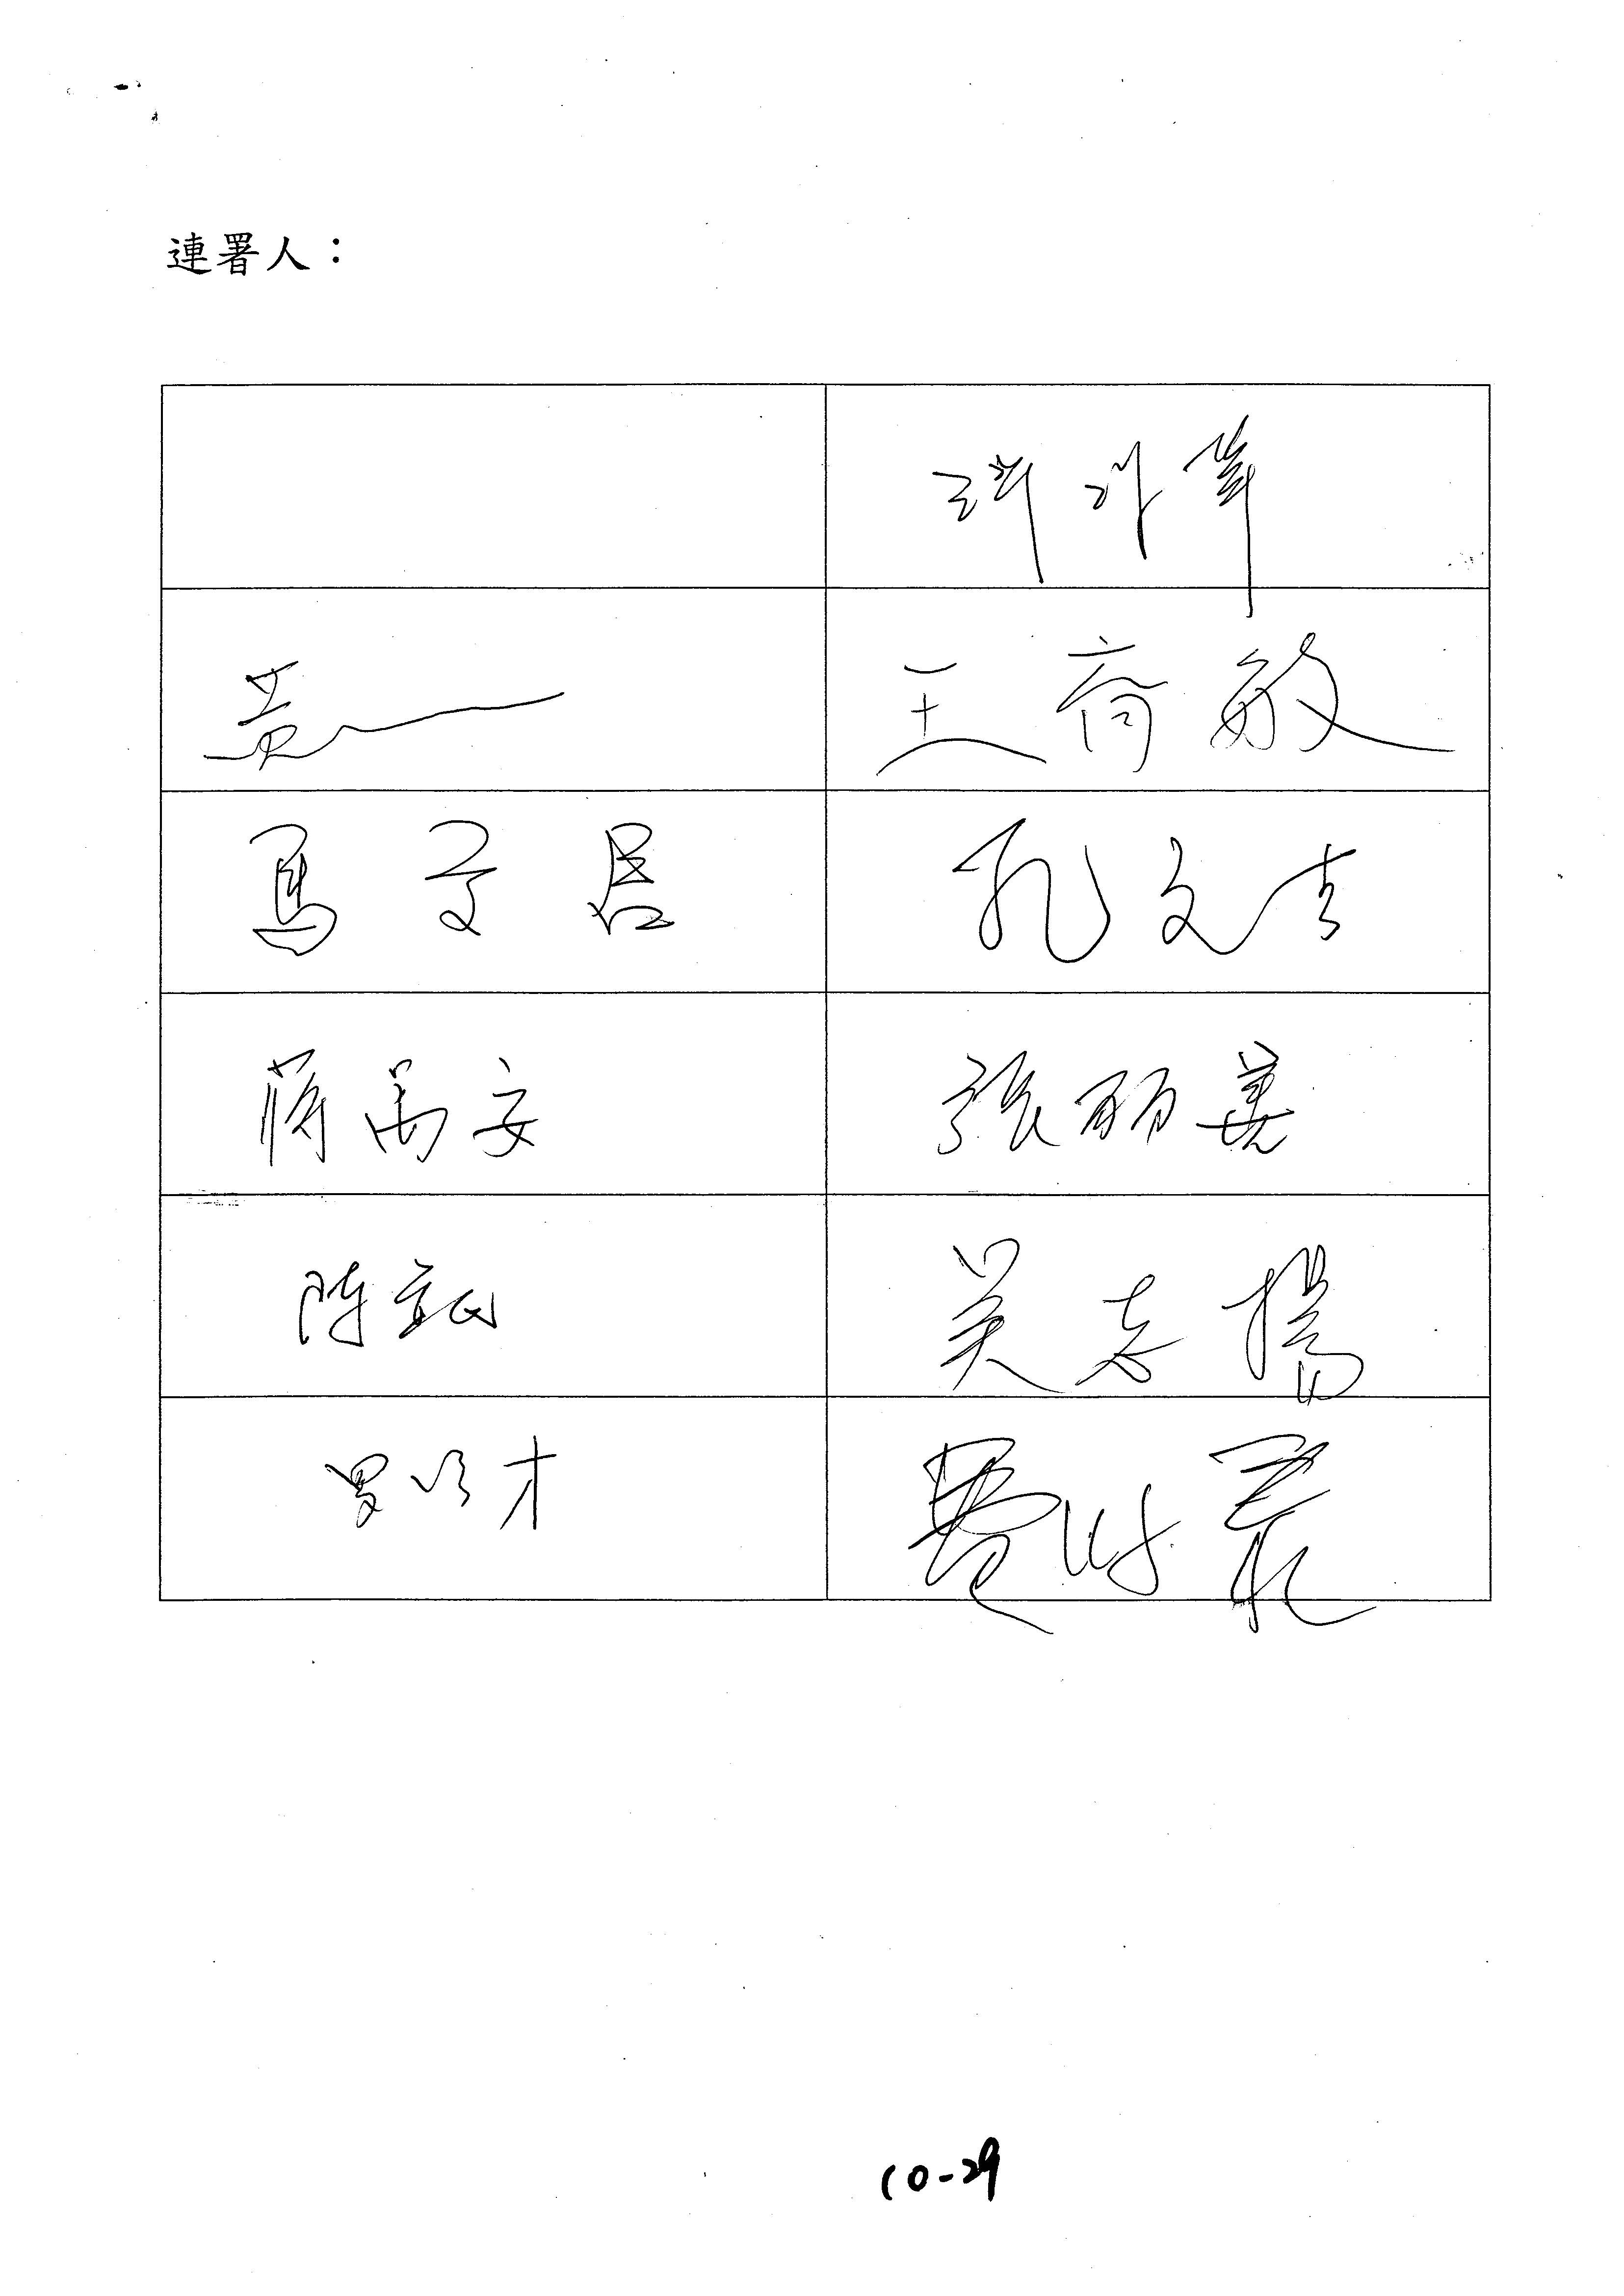 連署人：
黃
王育敏
馬文君 孔文吉
蔣萬安 張麗善
陳宜民 吳志揚
羅明才 費鴻泰
10-29